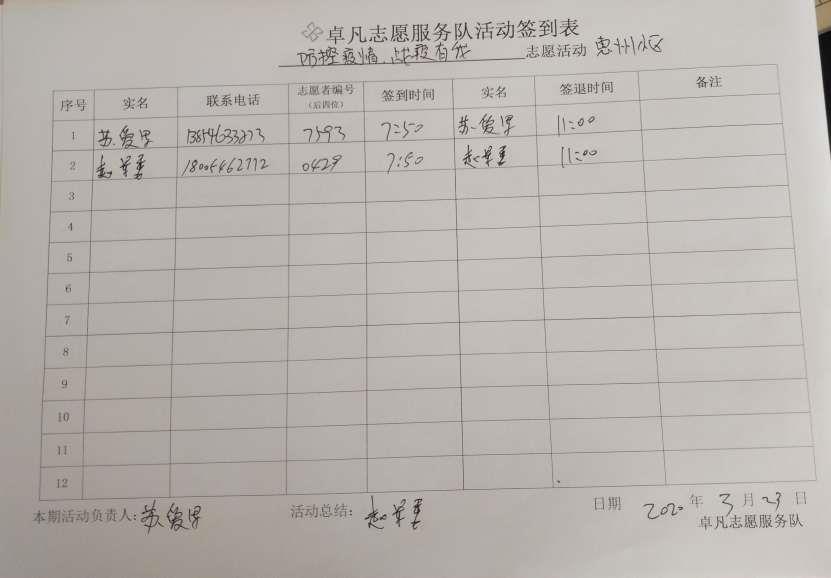 卓凡志愿服务队活动签到表
防控疫情，战疫有我 志愿活动 惠州小区
序号 实名 联系电话 志愿者编号（后四位） 签到时间 实名 签退时间 备注
1 苏爱 13854633273 7593 7:50 苏爱 11:00
2 赵 18005462772 0429 7:50 赵 11:00
3
4
5
6
7
8
9
10
11
12
本期活动负责人: 苏爱 活动总结: 赵 日期 2020 年 3 月 23 日
卓凡志愿服务队